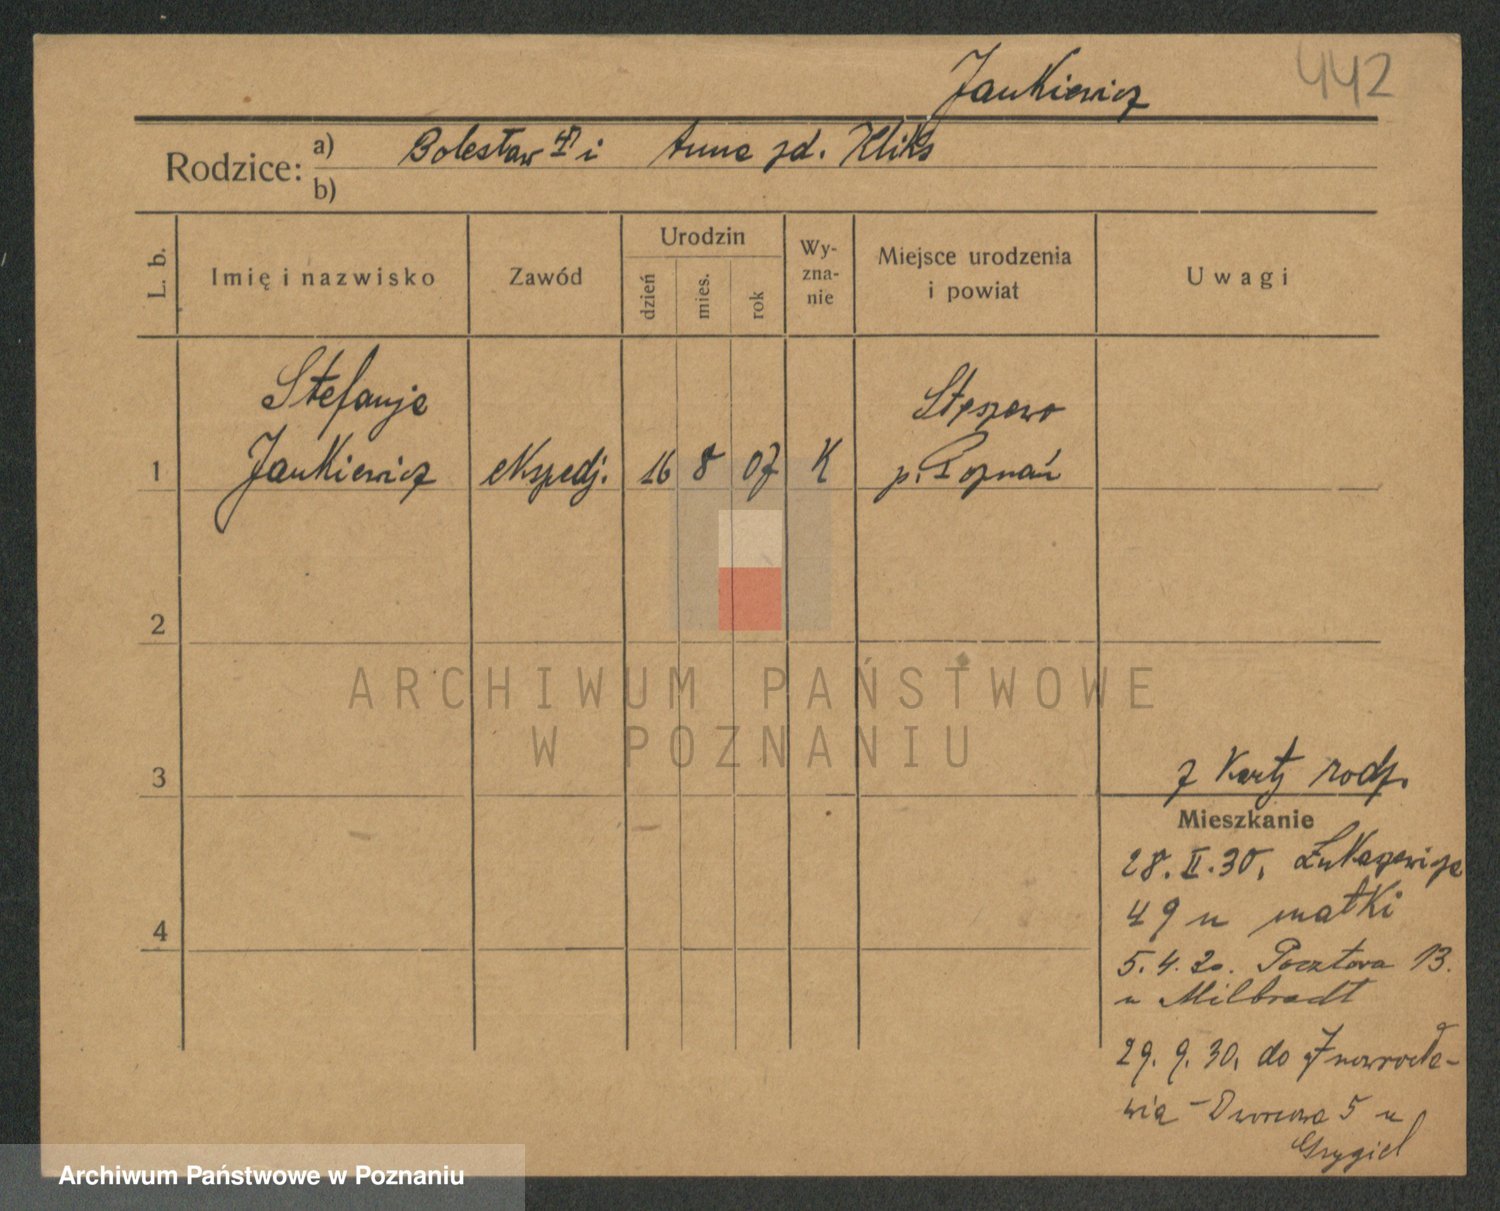 Jankiewicz 442
Rodzice: a) Bolesław i Anna zd. Kliks
b)
L. b. Imię i nazwisko Zawód Urodzin dzień mies. rok Wy-zna-nie Miejsce urodzenia i powiat Uwagi
Stefanja Stęszewo
1 Jankiewicz ekspedj. 16 8 07 K p. Poznań
2
ARCHIWUM PAŃSTWOWE
W POZNANIU
3 z Karty rodz.
Mieszkanie
28. II. 30. Łukaszewicza
4 49 u matki
5. 4. 30. Pocztowa 13.
u Milbradt
29. 9. 30. do Inowrocła-
wia - Dworcowa 5 u
Grygiel
Archiwum Państwowe w Poznaniu